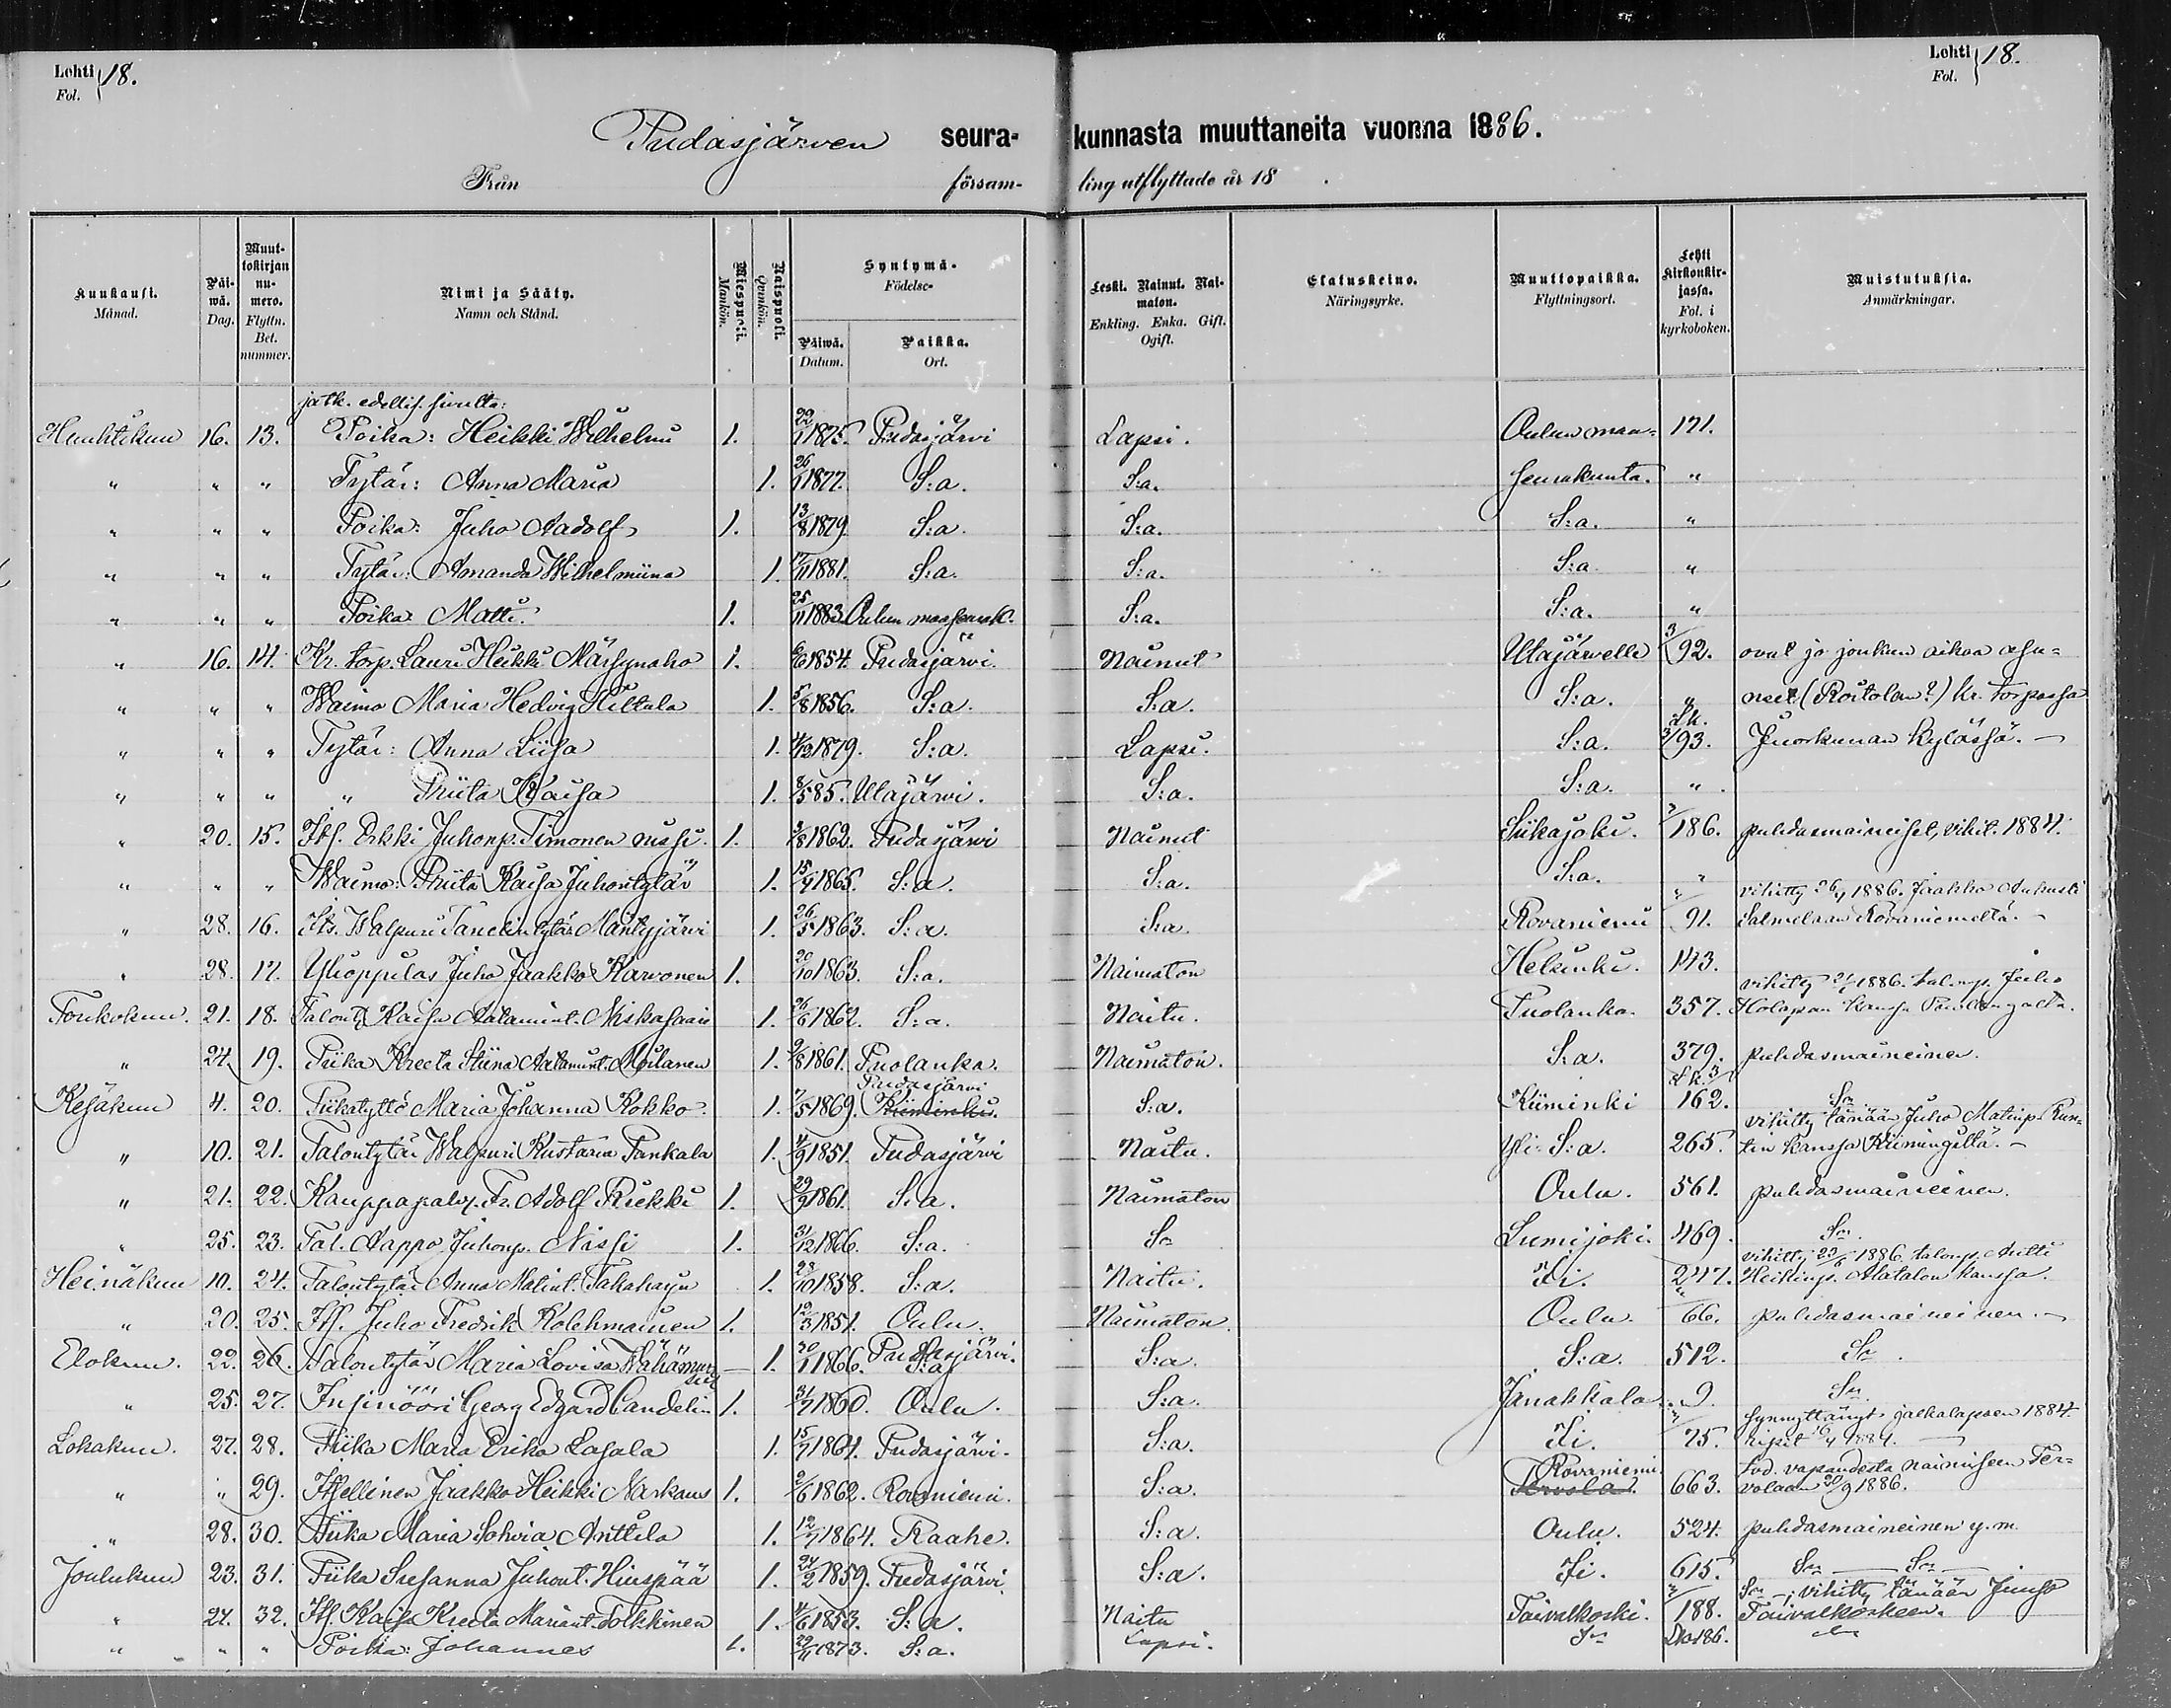 Lehti Fol. } 18.
Lehti Fol. } 18.
Pudasjärven seura- kunnasta muuttaneita vuonna 1886.
Från försam- ling utflyttade år 18 .
Kuukausi. Månad. | Päiwä. Dag. | Muuttokirjan numero. Flyttn. Bet. nummer. | Nimi ja Sääty. Namn och Stånd. | Miespuoli. Mankön. | Naispuoli. Qvinkön. | Syntymä- Födelse- Päiwä. Datum. | Paikka. Ort. | Leski. Nainut. Naimaton. Enkling. Enka. Gift. Ogift. | Elatuskeino. Näringsyrke. | Muuttopaikka. Flyttningsort. | Lehti Kirkonkirjassa. Fol. i kyrkoboken. | Muistutuksia. Anmärkningar.
jatk. edellis. sivulta:
Huhtikuu 16. 13. Poika: Heikki Wilhelmi 1. 22/1 1875. Pudasjärvi Lapsi. Oulun maa- 171.
" " " Tytär: Anna Maria 1. 26/1 1877. S:a. S:a. seurakunta. "
" " " Poika: Juho Aadolf 1. 13/8 1879 S:a. S:a. S:a. "
" " " Tytär: Amanda Wilhelmiina 1. 17/11 1881. S:a. S:a. S:a. "
" " " Poika Matti. 1. 25/11 1883 Oulun maaseurak. S:a. S:a. "
" 16. 14. Kr. torp. Lauri Heikki Märsynaho 1. 6/6 1854. Pudasjärvi. Nainut Utajärvelle 3/92. ovat jo jonkun aikaa asu-
" " " Waimo Maria Hedvig Hiltula 1. 5/8 1856. S:a. S:a. S:a. " neet (Roitolan?) kr. torpassa
" " " Tytär: Anna Liisa 1. 4/12 1879. S:a. Lapsi. S:a. Lk. 3/93. Juorkunan kylässä. —
" " " " Priita Kaisa 1. 8/5 85. Utajärvi. S:a. S:a. "
" 20. 15. Its. Erkki Juhonp. Timonen 1. 3/8 1862. Pudasjärvi Nainut Siikajoki. 186. puhdasmaineiset, vihit. 1884.
" " " Waimo: Priita Kaisa Juhontytär 1. 15/7 1865. S:a. S:a. S:a. "
vihitty 26/4 1886. Jaakko Aukusti
" 28. 16. Its. Walpuri Tanelintytär Mäntyjärvi 1. 26/5 1863. S:a. S:a. Rovaniemi 91. Salmelaan Rovaniemeltä. —
" 28. 17. Ylioppilas Juho Jaakko Karvonen 1. 20/10 1863. S:a. Naimaton Helsinki. 143.
vihitty 21/5 1886. talonp. Juho
Toukokuu. 21. 18. Talont. Kaisa Aatamint. Niskasaari 1. 26/6 1862. S:a. Naitu. Puolanka. 357. Holapan kanssa Puolangalta.
" 24. 19. Piika Kreeta Stiina Aatamint. Moilanen 1. 9/8 1861. Puolanka. Naimaton. S:a. 379. puhdasmaineinen.
Pudasjärvi Lk. 3
Kesäkuu 4. 20. Piikatyttö Maria Johanna Kokko. 1. 7/5 1869. Kiiminki. S:a. Kiiminki 162. Sn
vihitty tänään Juho Matinp. Kun-
" 10. 21. Talontytär Walpuri Kustava Pankala 1. 4/9 1851. Pudasjärvi Naitu. Yli-S:a. 265. tin kanssa Kiimingiltä. —
" 21. 22. Kauppapalv. Fr. Adolf Riekki 1. 29/9 1861. S:a. Naimaton Oulu. 561. puhdasmaineinen.
" 25. 23. Tal. Aappo Juhonp. Nissi 1. 31/12 1866. S:a. Sn Lumijoki. 469. Sn
vihitty 29/6 1886 talonp. Antti
Heinäkuu 10. 24. Talontytär Anna Matint. Takaharju 1. 28/10 1858. S:a. Naitu. Ii. 247. Heikinp. Alatalon kanssa.
" 20. 25. Its. Juho Fredrik Kolehmainen 1. 12/3 1851. Oulu. Naimaton. Oulu. 66. puhdasmaineinen. —
Elokuu. 22. 26. Talontytär Maria Lovisa — 1. 30/1 1866. Pudasjärvi. S:a. S:a. 512. Sn.
" 25. 27. Insinööri Georg Edvard Candelin 1. 31/7 1860. Oulu. S:a. Janakkala. 9. Sn.
synnyttänyt jalkalapsen 1884.
Lokakuu. 27. 28. Piika Maria Erika Lasala 1. 15/7 1861. Pudasjärvi. S:a. Ii. 75. ripit. 1884. —
Rovaniemi. tod. vapaudesta naimiseen Ter-
" " 29. Itsellinen Jaakko Heikki Narkaus 1. 2/6 1862. Rovaniemi. S:a. Tervola. 663. volaan 20/9 1886.
" 28. 30. Piika Maria Sohvia Anttila 1. 12/7 1864. Raahe. S:a. Oulu. 524. puhdasmaineinen y. m.
Joulukuu 23. 31. Piika Susanna Juhont. Hiuspää 1. 24/2 1859. Pudasjärvi. S:a. Ii. 615. Sn — Sn —
Sn —; vihitty tänään Juuso
" 27. 32. Its. Kaisa Kreeta Mariant. Tolkkinen 1. 4/6 1853. S:a. Naitu Taivalkoski. 188. Taivalkoskeen.
" " " Poika: Johannes 1. 29/11 1873. S:a. Lapsi. Sn 186. Sn